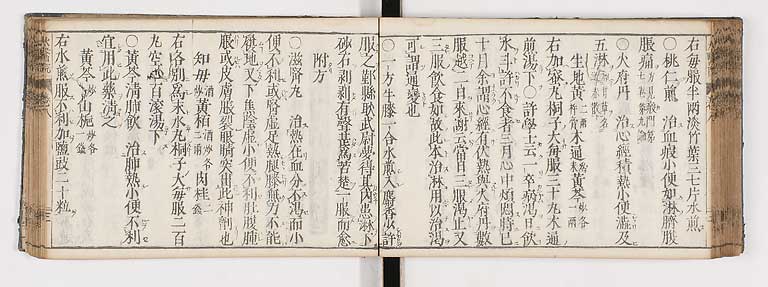 右每服半兩淡竹葉三七片水煎
○桃仁煎 治血瘕小便如淋臍腹
脹痛
○大府丹 治心經積熱小便澁及
五淋
生地黃 木通 黃芩
右加密丸桐子大每服三十九木通
前湯下○許學士云一卒病渴日飲
水斗許不食者三月心中煩悶時已
十月余謂心經有伏熱與大府丹數
服越二日來謝云當日三服渴止又
三服飲食如故此本治淋用以治渴
可謂通變也
○一方牛膝一合水煎入麝香少許
服之鄞縣耿武尉妻得其內患淋下
砂石剥剥有聲甚為苦楚一服而愈
附方
○滋腎丸 治熱在血分不渴而小
便不利或腎虛足熱腿膝無力不能
履地又下焦陰虛小便不利肚腹腫
脹或皮膚脹裂眼睛突出此神劑也
知母 黃栢 肉桂
右咯別為末水丸桐子大每服二百
丸空心百滚湯下
○黃芩清肺飲 治肺熱小便不利
宜用此藥清之
黃芩 山栀
右水煎服不利加鹽豉二十粒